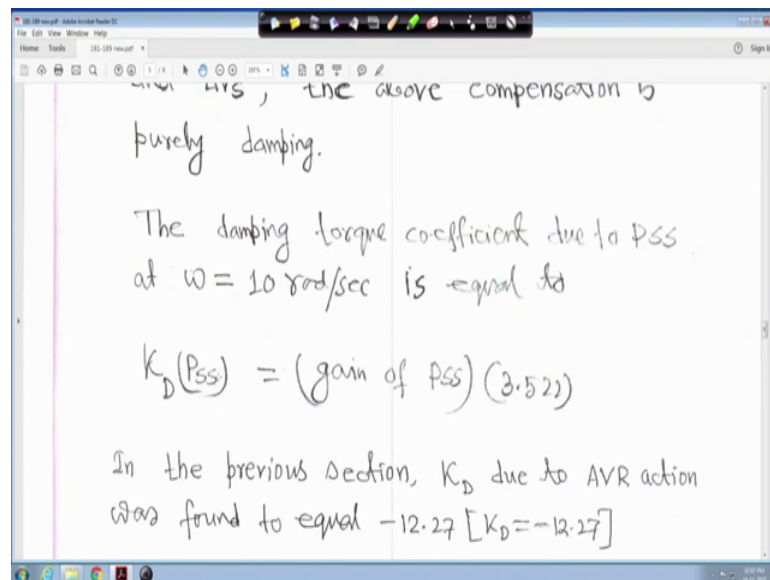 181-189 new.pdf - Adobe Acrobat Reader DC
File Edit View Window Help
Home Tools 181-189 new.pdf ×
Sign In
the above compensation is
purely damping.
The damping torque coefficient due to PSS
at ω = 10 rad/sec is equal to
K_D(PSS) = (gain of PSS) (3.522)
In the previous section, K_D due to AVR action
was found to equal -12.27 [K_D = -12.27]